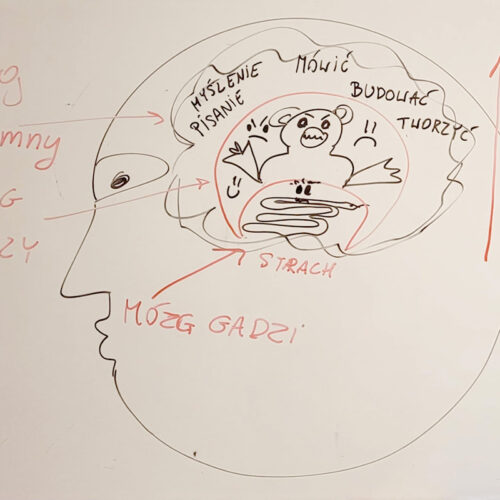 MÓWIĆ
MYŚLENIE
PISANIE
BUDOWAĆ
TWORZYĆ
OJ
MNY
G
ZY
STRACH
MÓZG GADZI